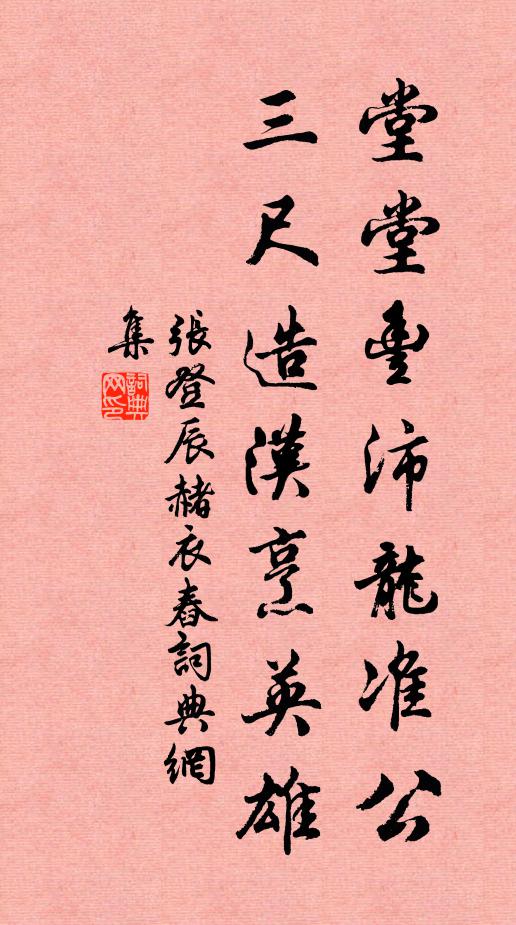 堂堂豊沛龍准公
三尺造漢烹英雄
張登辰赭衣舂詞典網
集
詞典
网印